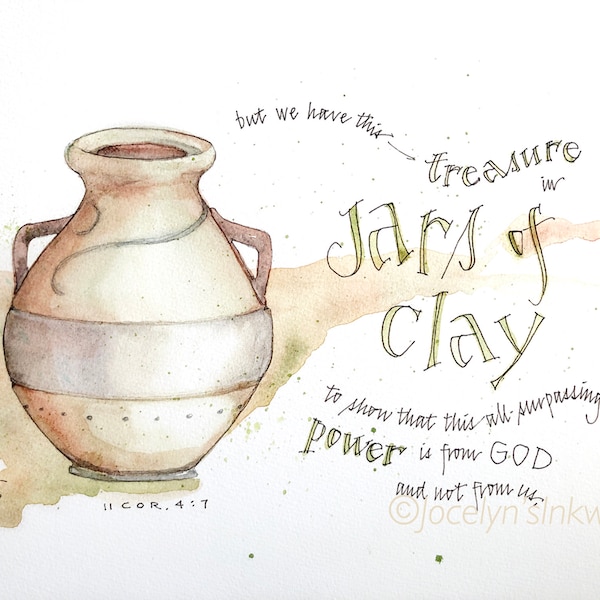 but we have this
treasure
in
Jars of
clay
to show that this all-surpassing
power is from GOD
and not from us.
II COR. 4:7
©Jocelyn sInkw